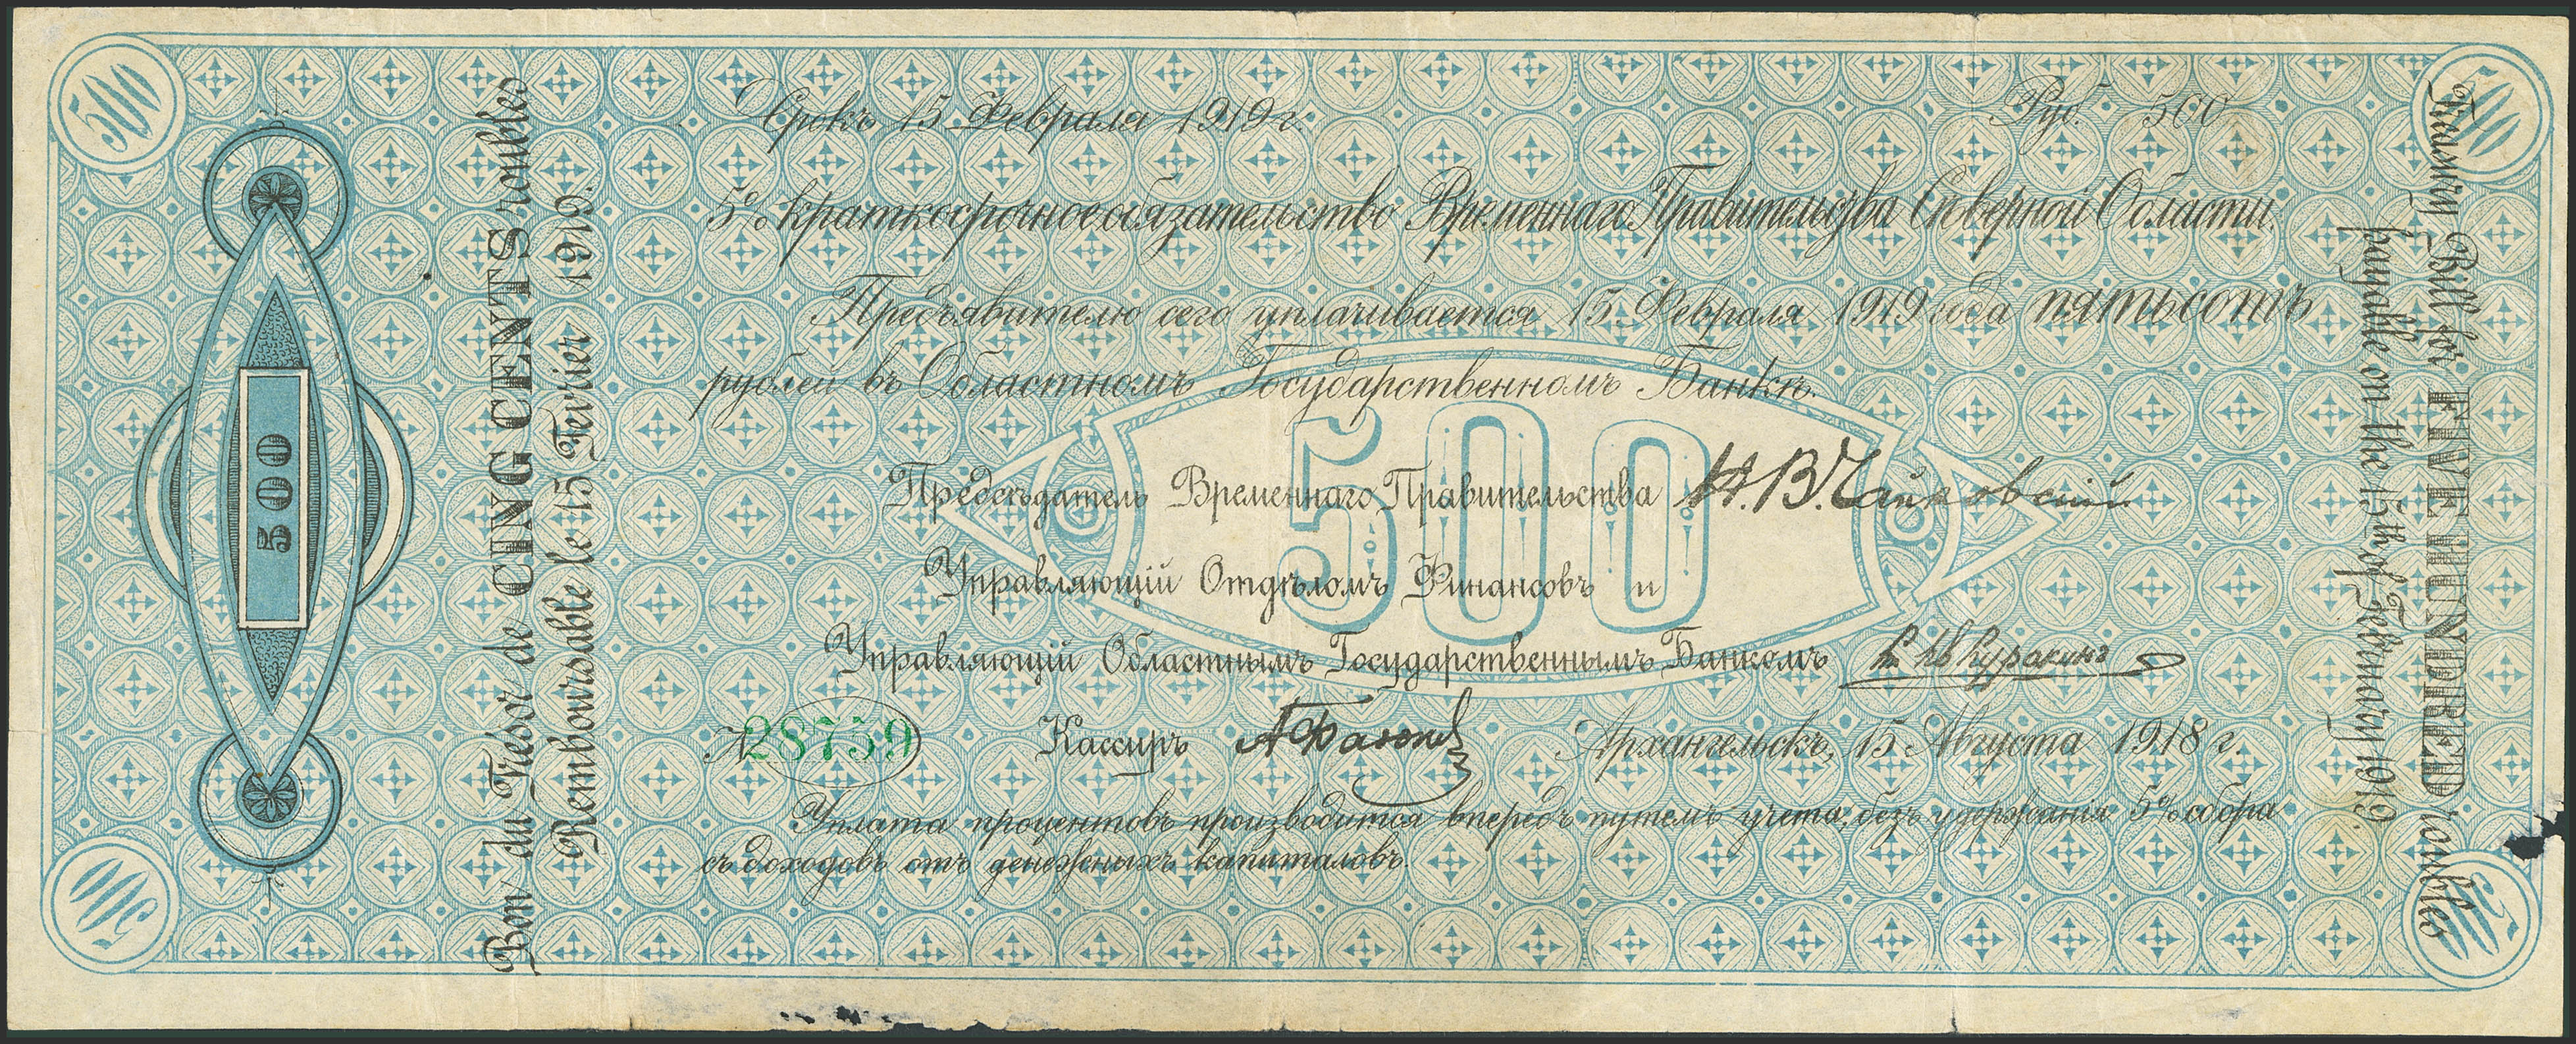 500
500
Срокъ 15 Февраля 1919 г.
Руб. 500
5% краткосрочное обязательство Временнаго Правительства Северной Области.
Предъявителю сего уплачивается 15 Февраля 1919 года пятьсотъ
рублей въ Областномъ Государственномъ Банкѣ.
500
Предсѣдатель Временнаго Правительства Н. В. Чайковскій
Управляющій Отдѣломъ Финансовъ и
Управляющій Областнымъ Государственнымъ Банкомъ
28759
Кассиръ
Архангельскъ, 15 Августа 1918 г.
Уплата процентовъ производится впередъ путемъ учета, безъ удержанія 5% сбора
съ доходовъ отъ денежныхъ капиталовъ.
500
Bon du Trésor de CINQ CENTS roubles
Remboursable le 15 Fevrier 1919.
Treasury Bill for FIVE HUNDRED roubles
payable on the 15th of February 1919.
500
500